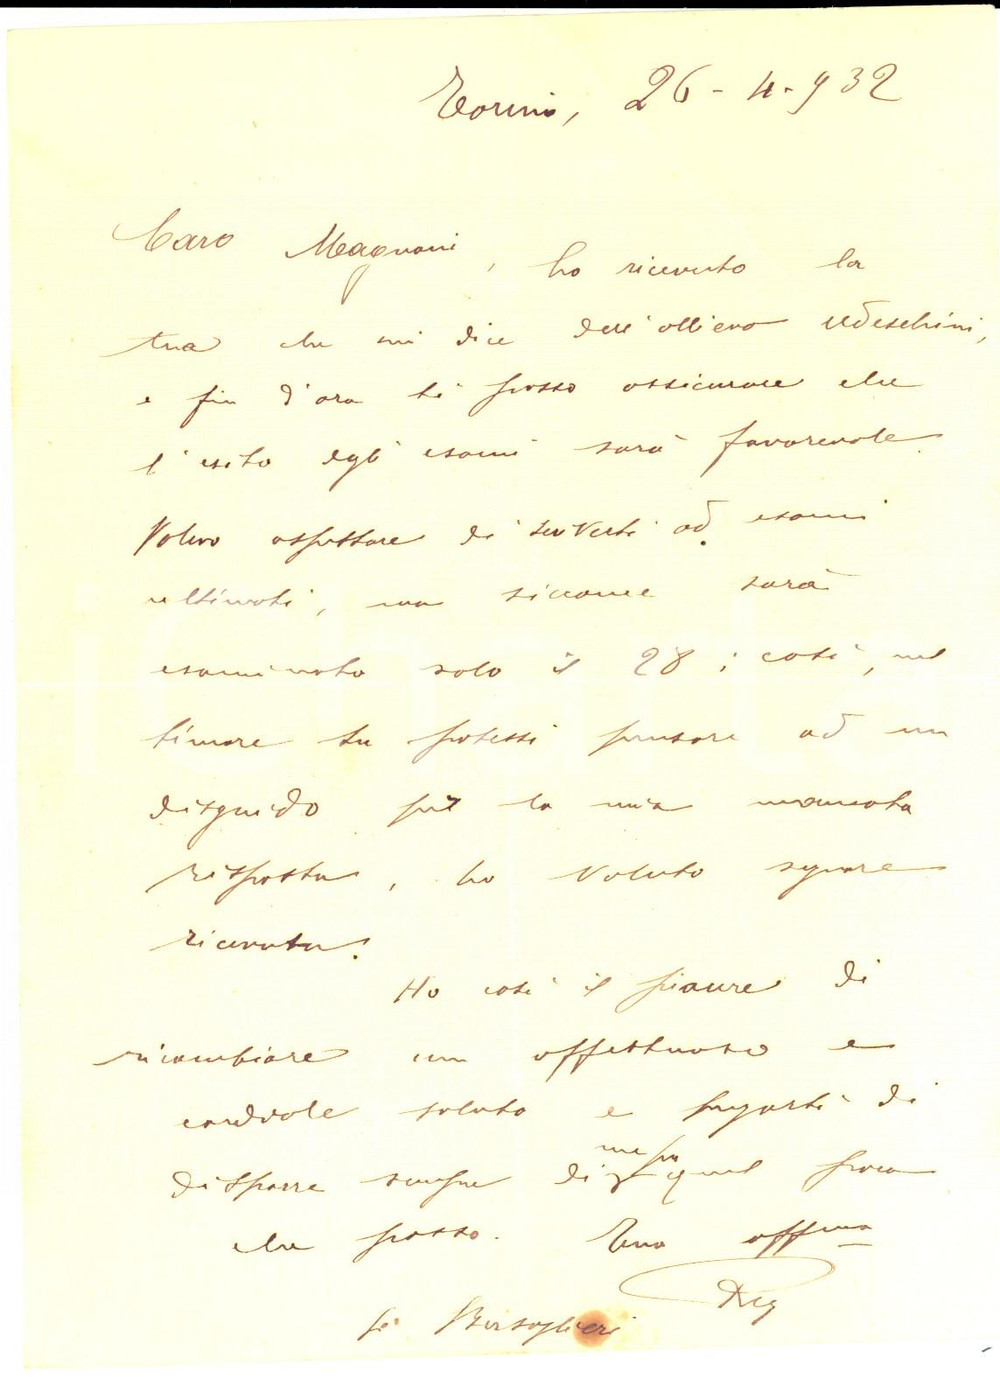 Torino, 26-4-932
Caro Magnani, ho ricevuto la
tua che mi dice dell'allievo Udeschini,
e fin d'ora ti posso assicurare che
l'esito degli esami sarà favorevole.
Volevo aspettare di scriverti ad esami
ultimati, ma siccome sarà
esaminato solo il 28; così, nel
timore tu potessi pensare ad un
disguido per la mia mancata
risposta, ho voluto segnare
ricevuta.
Ho così il piacere di
ricambiare un affettuoso e
cordiale saluto e pregarti di
disporre sempre di me per quel poco
che posso. Tuo affmo
Bersaglieri